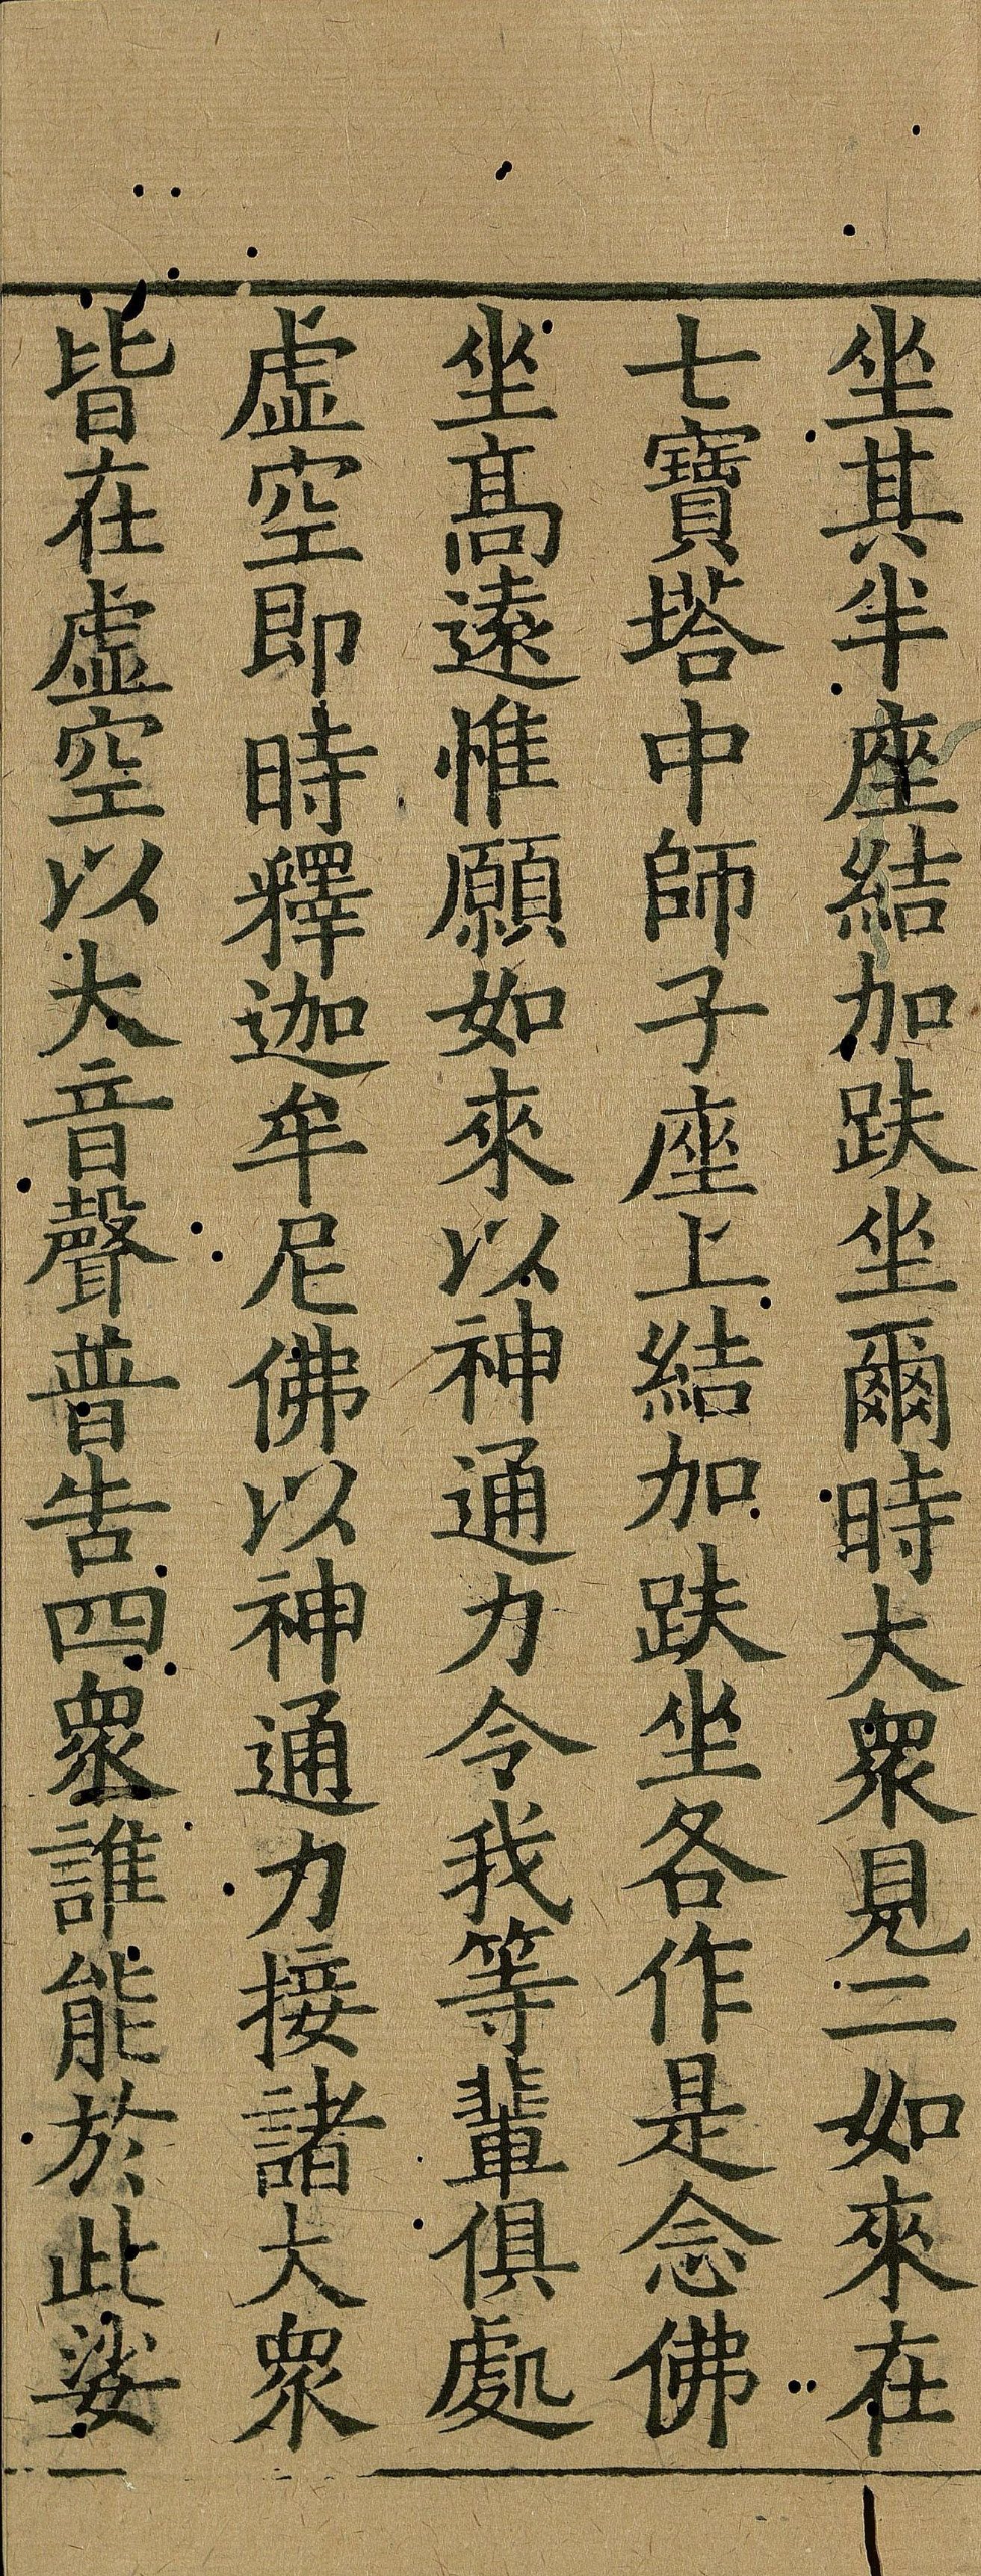 坐其半座結加趺坐爾時大衆見二如來在
七寶塔中師子座上結加趺坐各作是念佛
坐高遠惟願如來以神通力令我等輩俱處
虛空即時釋迦牟尼佛以神通力接諸大衆
皆在虛空以大音聲普告四衆誰能於此娑